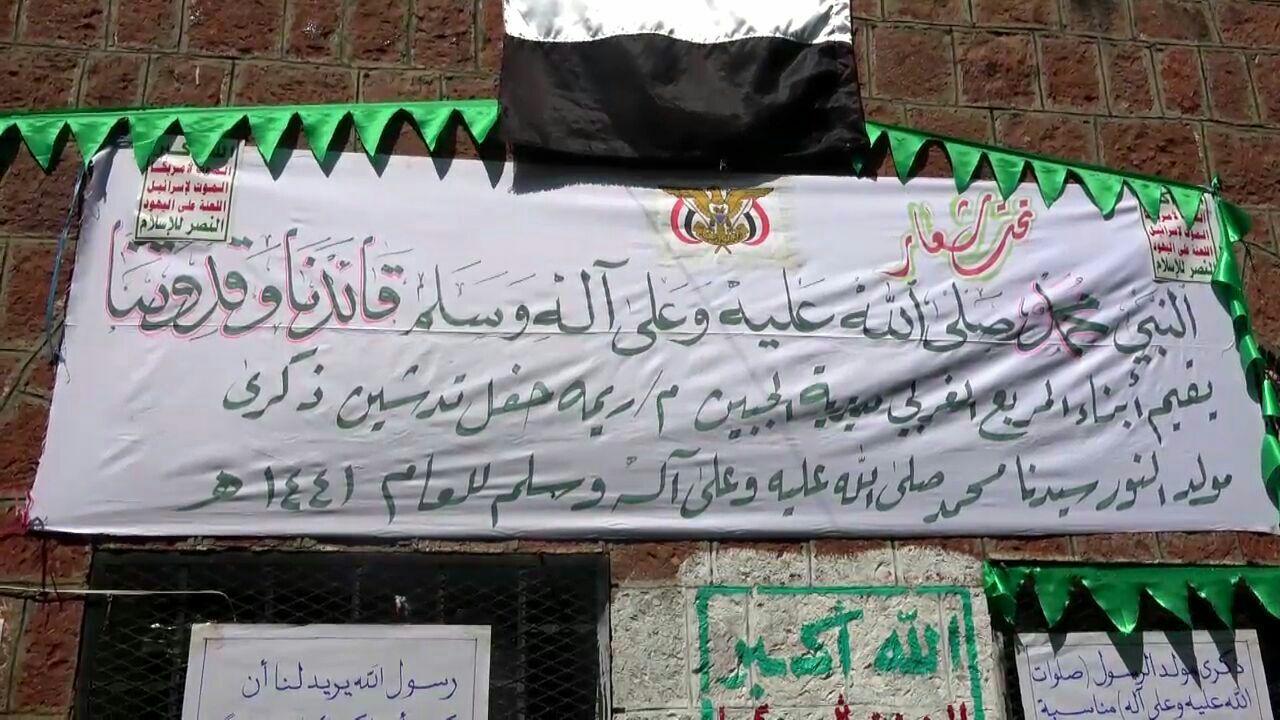 تحت شعار
النبي محمد صلى الله عليه وعلى آله وسلم قائدنا وقدوتنا
يقيم أبناء المربع الغربي مديرية الجبين م/ريمه حفل تدشين ذكرى
مولد النور سيدنا محمد صلى الله عليه وعلى آله وسلم للعام ١٤٤١ هـ
الموت لأمريكا
الموت لإسرائيل
اللعنة على اليهود
النصر للإسلام
الموت لإسرائيل
اللعنة على اليهود
النصر للإسلام
الله أكبر
ذكرى مولد الرسول (صلوات
الله عليه وعلى آله) مناسبة
رسول الله يريد لنا أن